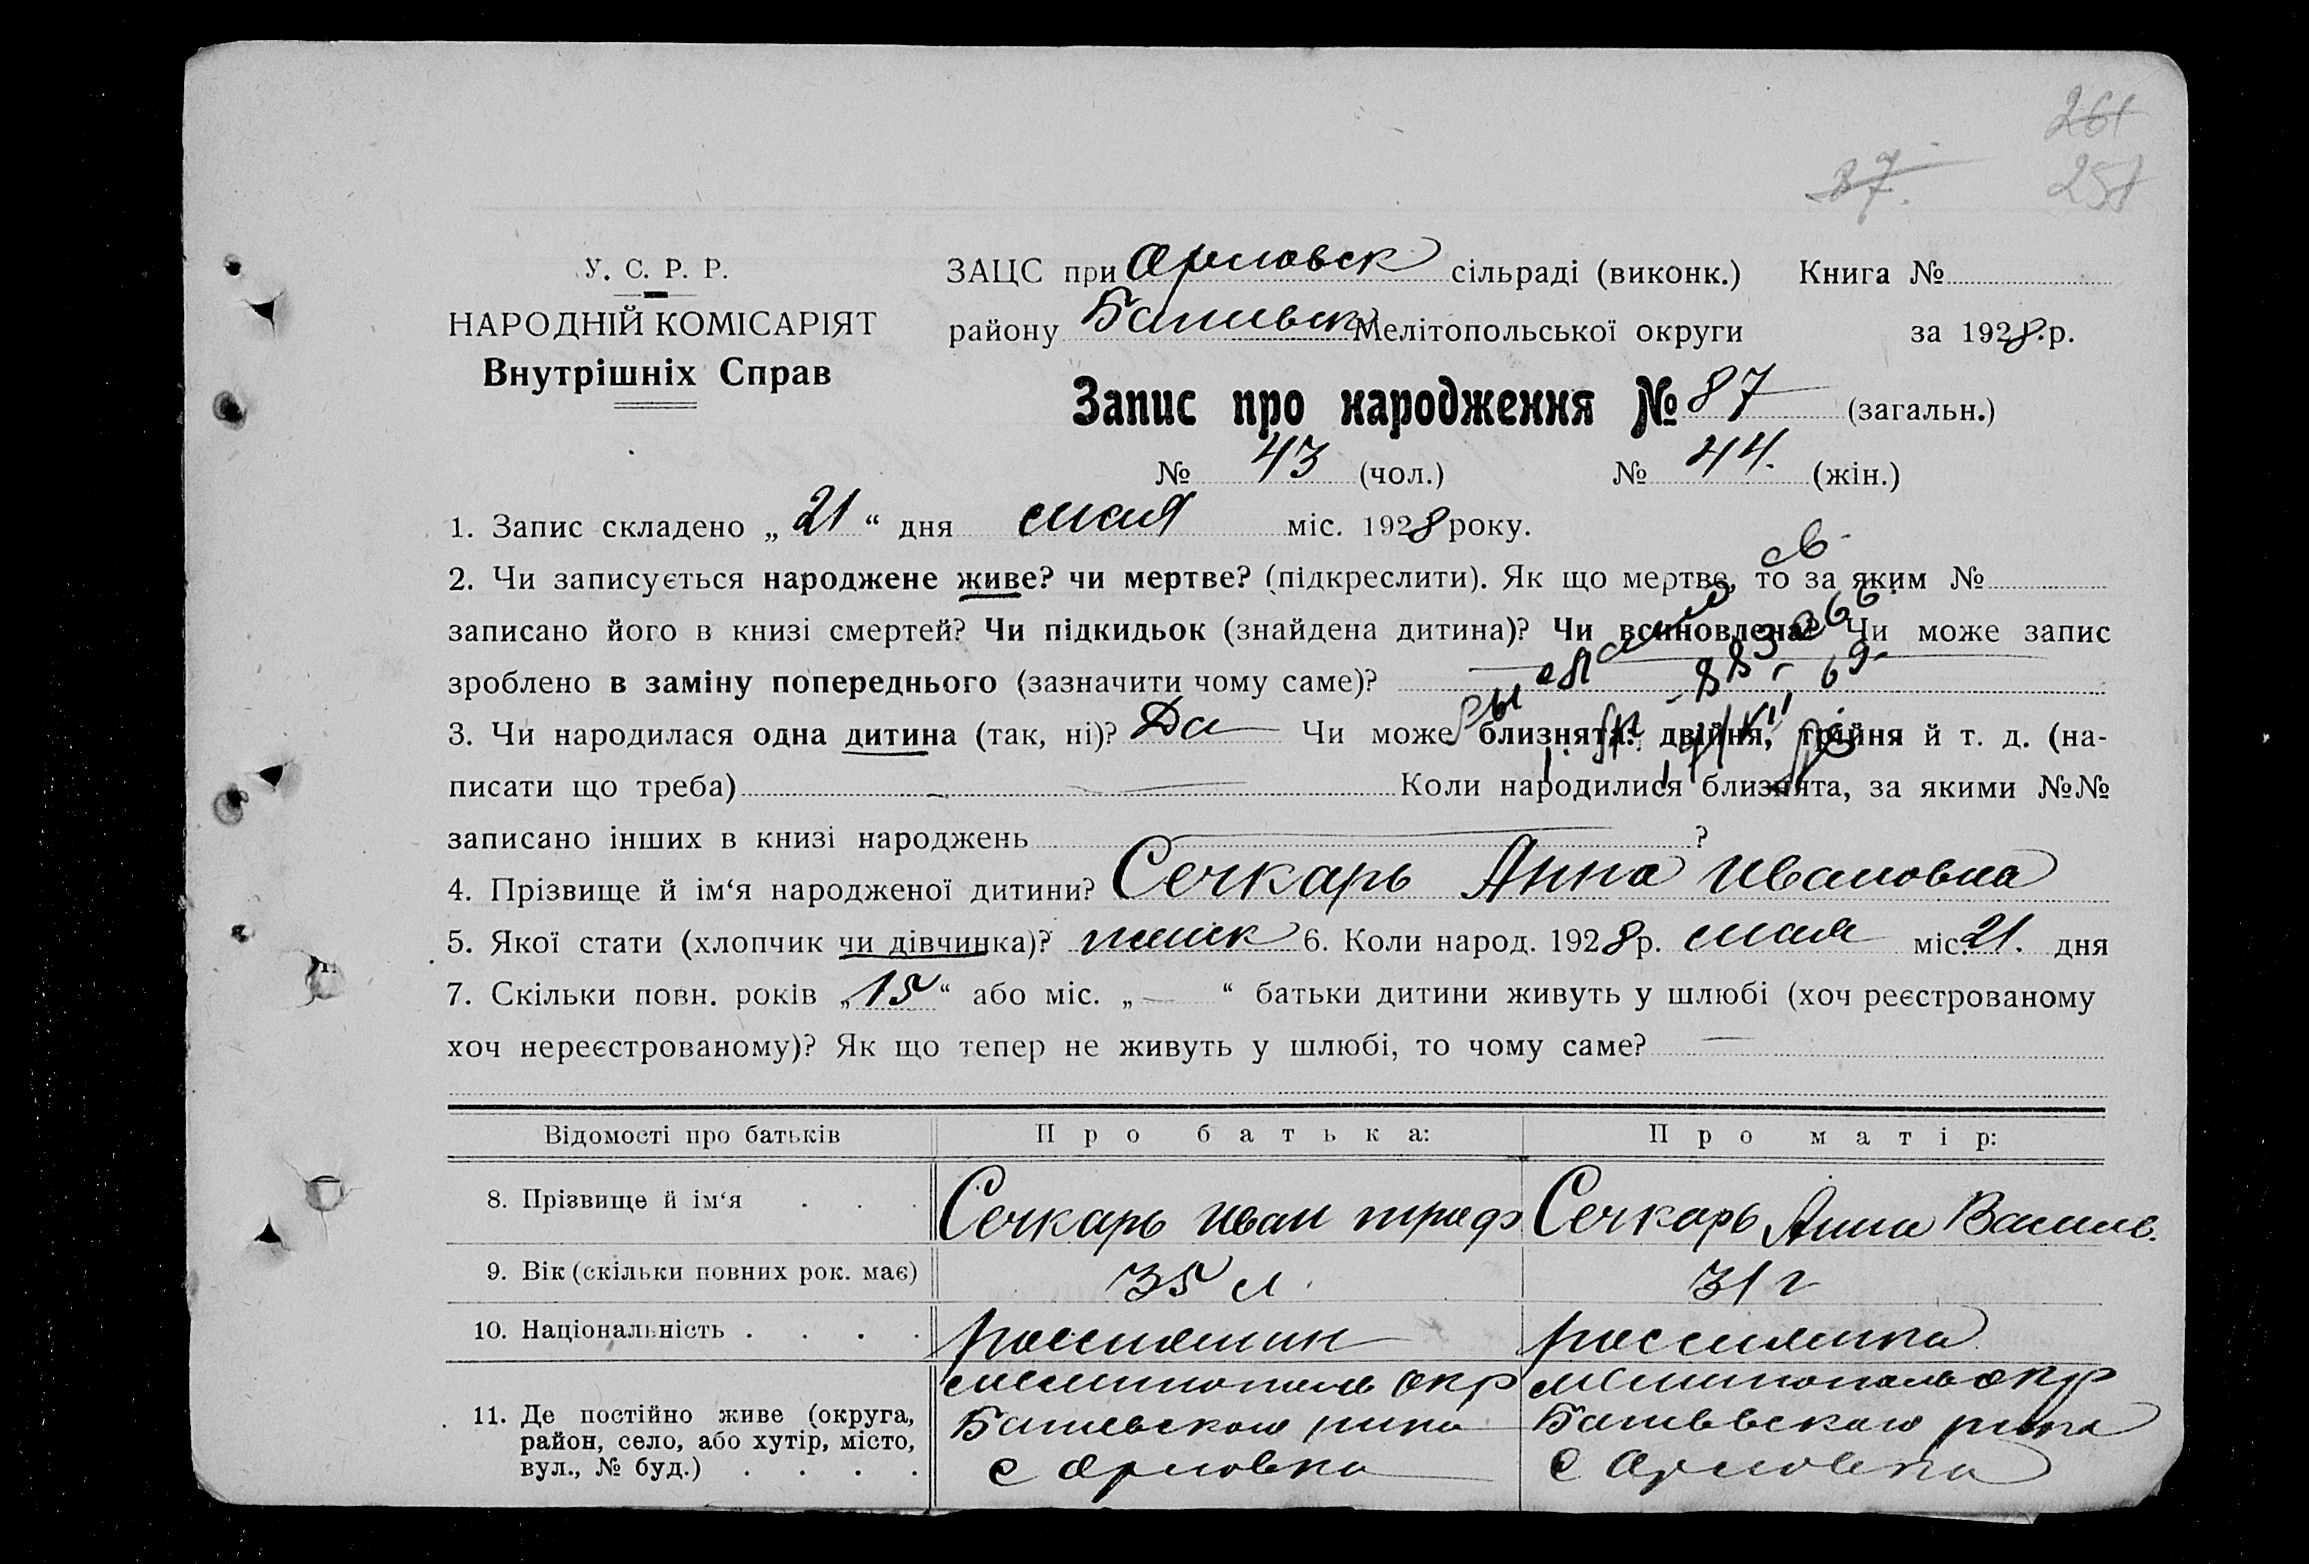 261
87.
251
У. С. Р. Р.
НАРОДНІЙ КОМІСАРІЯТ
Внутрішніх Справ
ЗАЦС при Орловск сільраді (виконк.) Книга №
району Мелітопольської округи за 1928.р.
Запис про народження № 87 (загальн.)
№ 43 (чол.) № 44. (жін.)
1. Запис складено „ 21 “ дня мая міс. 1928 року.
2. Чи записується народжене живе? чи мертве? (підкреслити). Як що мертве, то за яким №
записано його в книзі смертей? Чи підкидьок (знайдена дитина)? Чи всиновлена? Чи може запис
зроблено в заміну попереднього (зазначити чому саме)?
3. Чи народилася одна дитина (так, ні)? Да Чи може близнята: двійня, трійня й т. д. (на-
писати що треба) Коли народилися близнята, за якими №№
записано інших в книзі народжень ?
4. Прізвище й ім‘я народженої дитини? Сечкарь Анна Ивановна
5. Якої стати (хлопчик чи дівчинка)? 6. Коли народ. 1928 р. мая міс. 21. дня
7. Скільки повн. років „ 15 “ або міс. „ — “ батьки дитини живуть у шлюбі (хоч реєстрованому
хоч нереєстрованому)? Як що тепер не живуть у шлюбі, то чому саме? —
Відомості про батьків Про батька: Про матір:
8. Прізвище й ім‘я . . . Сечкарь Иван Сечкарь Анна Василь.
9. Вік (скільки повних рок. має) 35 л. 31 г
10. Національність . . . . россиянин россиянка
11. Де постійно живе (округа, район, село, або хутір, місто, вул., № буд.) . . . . Мелитополь окр Мелитополь окр
с Орловка с Орловка